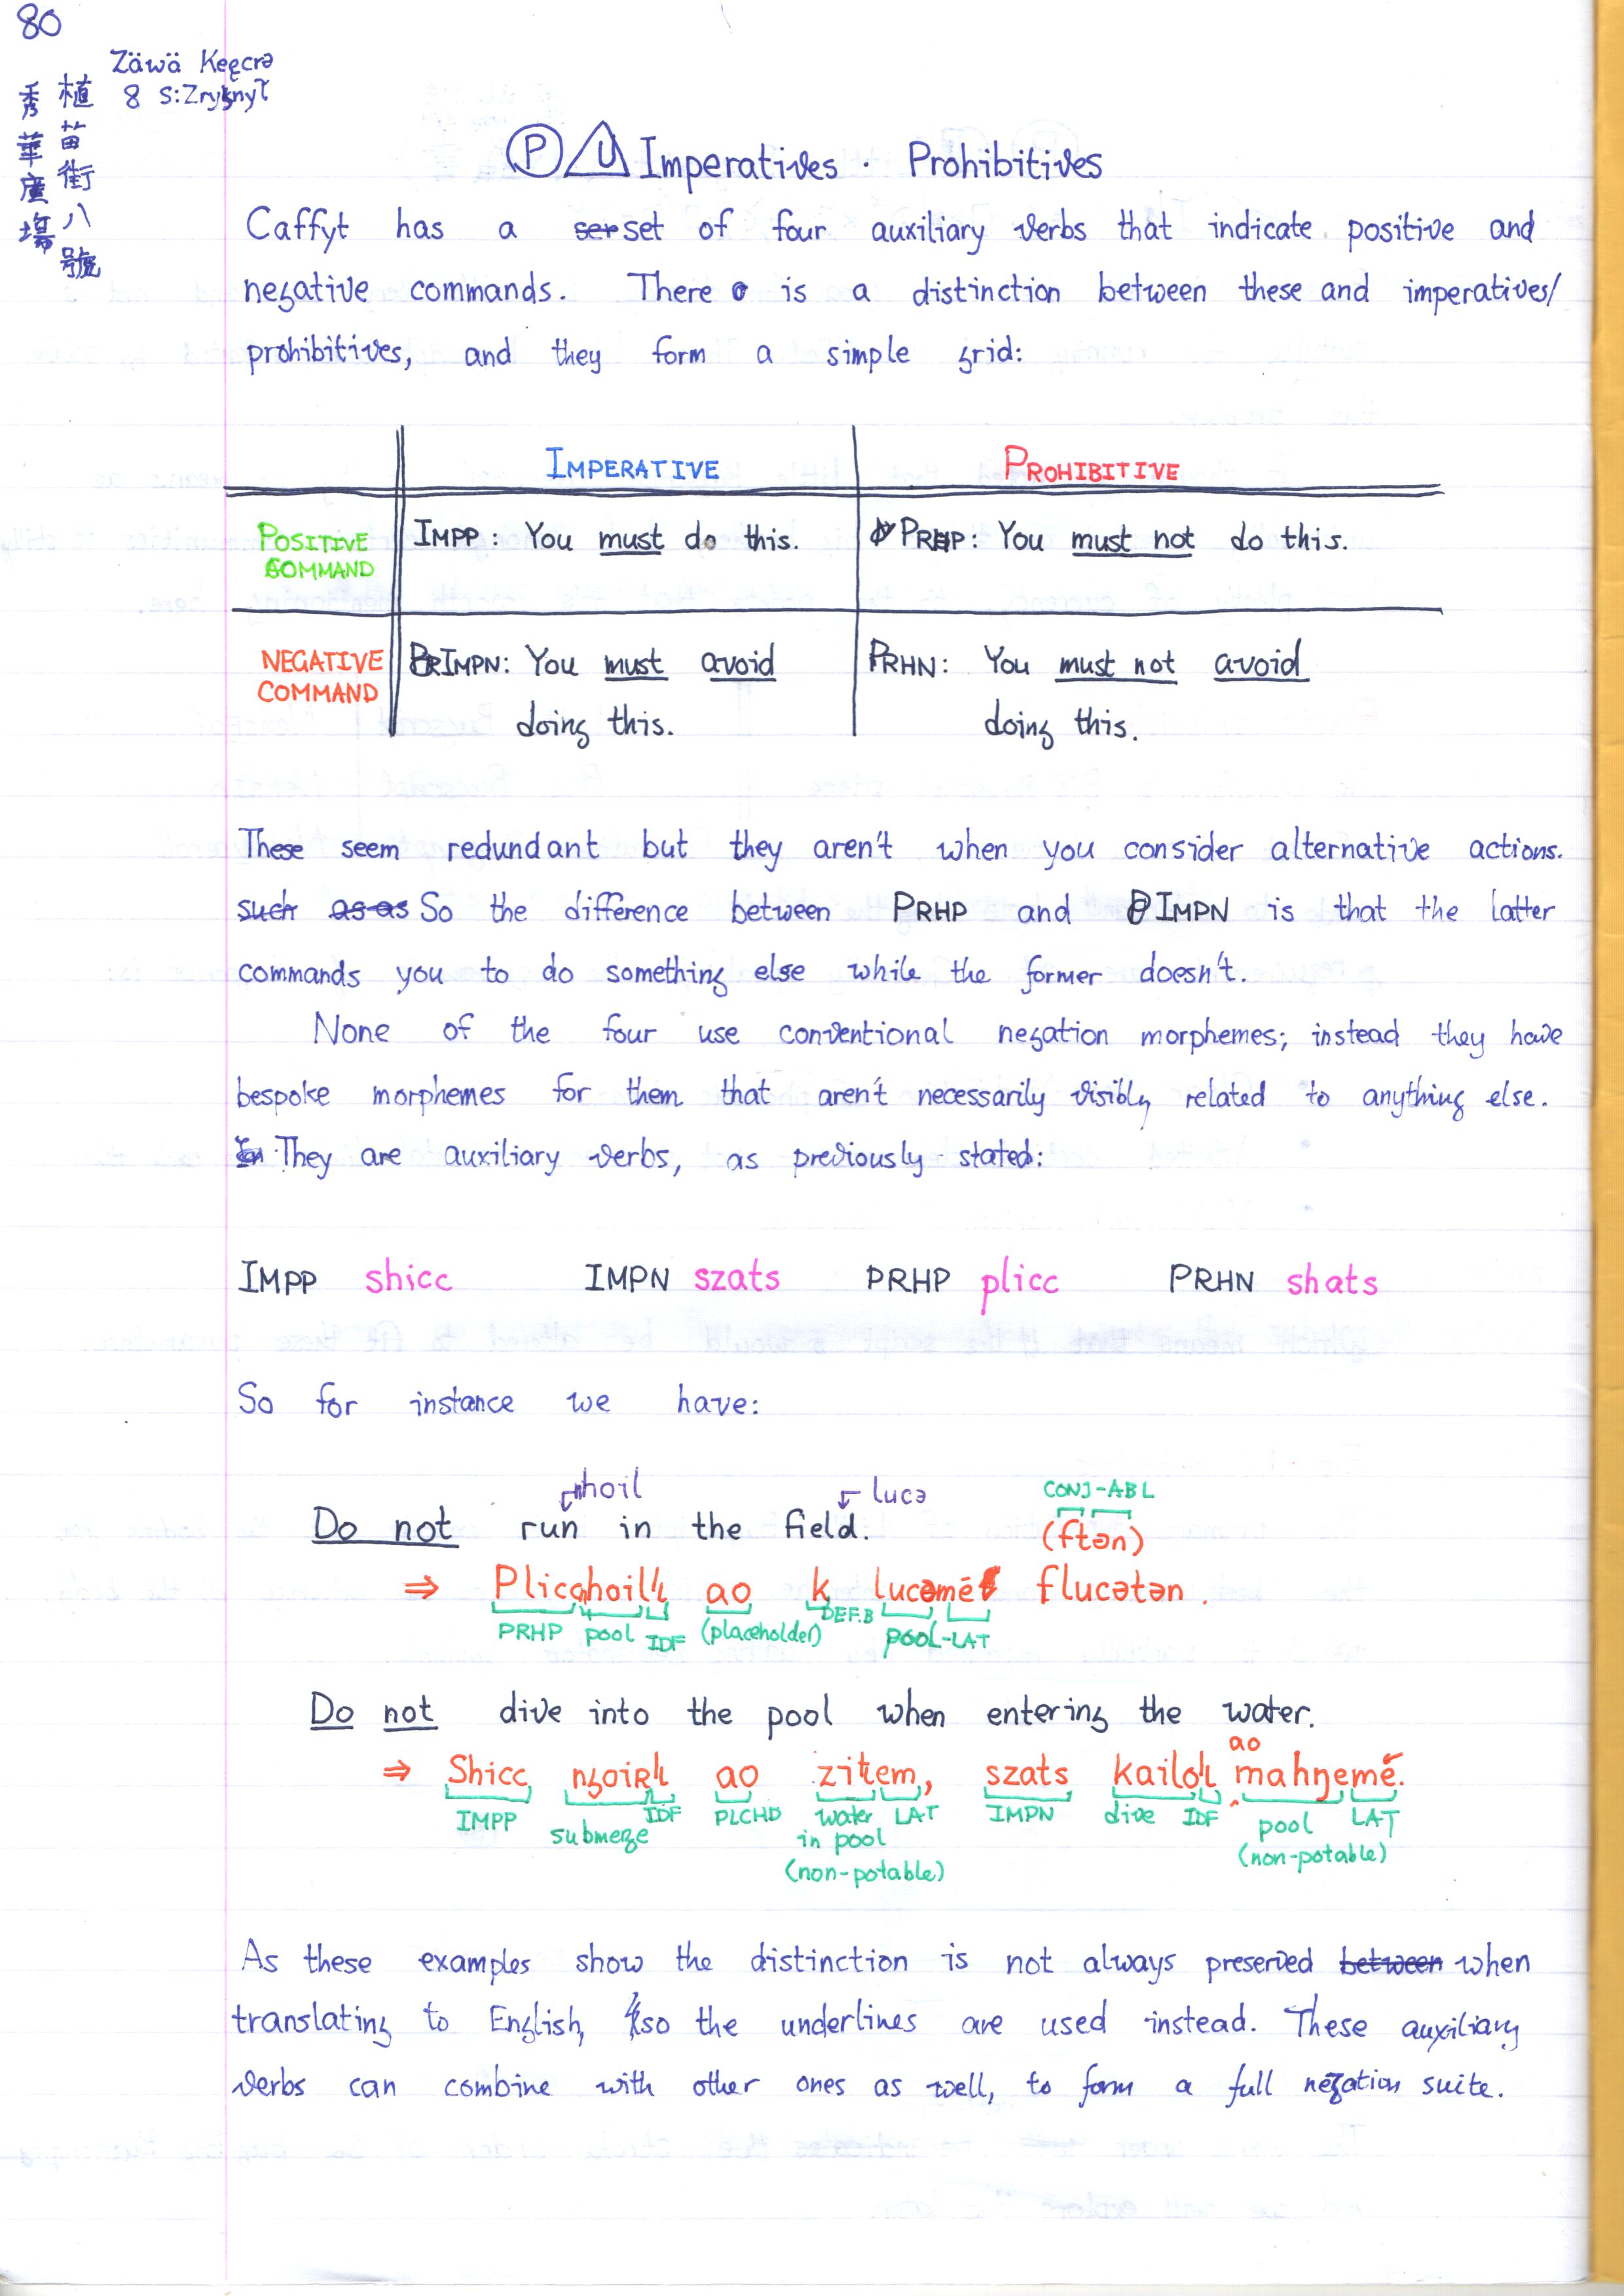 80
Zäwä Kęęcrə
植苗街八號
秀華廣場
Ⓟ Imperatives · Prohibitives
Caffyt has a ser set of four auxiliary verbs that indicate positive and
negative commands. There is a distinction between these and imperatives/
prohibitives, and they form a simple grid:
IMPERATIVE PROHIBITIVE
POSITIVE COMMAND
IMPP: You must do this.
PRHP: You must not do this.
NEGATIVE COMMAND
IMPN: You must avoid
doing this.
PRHN: You must not avoid
doing this.
These seem redundant but they aren't when you consider alternative actions.
such as as So the difference between PRHP and IMPN is that the latter
commands you to do something else while the former doesn't.
None of the four use conventional negation morphemes; instead they have
bespoke morphemes for them that aren't necessarily visibly related to anything else.
They are auxiliary verbs, as previously stated:
IMPP shicc IMPN szats PRHP plicc PRHN shats
So for instance we have:
hoil lucə CONJ-ABL
Do not run in the field. (ftən)
⇒ ao k flucətən.
PRHP pool IDF (placeholder) DEF.B pool-LAT
Do not dive into the pool when entering the water.
ao
⇒ Shicc ao szats
IMPP submerge IDF PLCHD water in pool (non-potable) LAT IMPN dive IDF pool (non-potable) LAT
As these examples show the distinction is not always preserved between when
translating to English, so the underlines are used instead. These auxiliary
verbs can combine with other ones as well, to form a full negation suite.